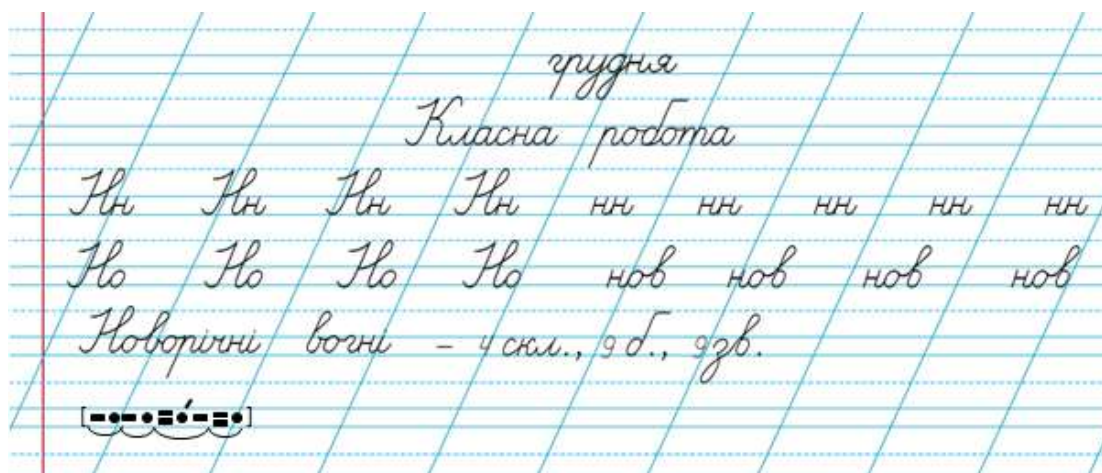 грудня
Класна робота
Нн Нн Нн Нн нн нн нн нн нн
Но Но Но Но нов нов нов нов
Новорічні вогні – 4 скл., 9 б., 9 зв.